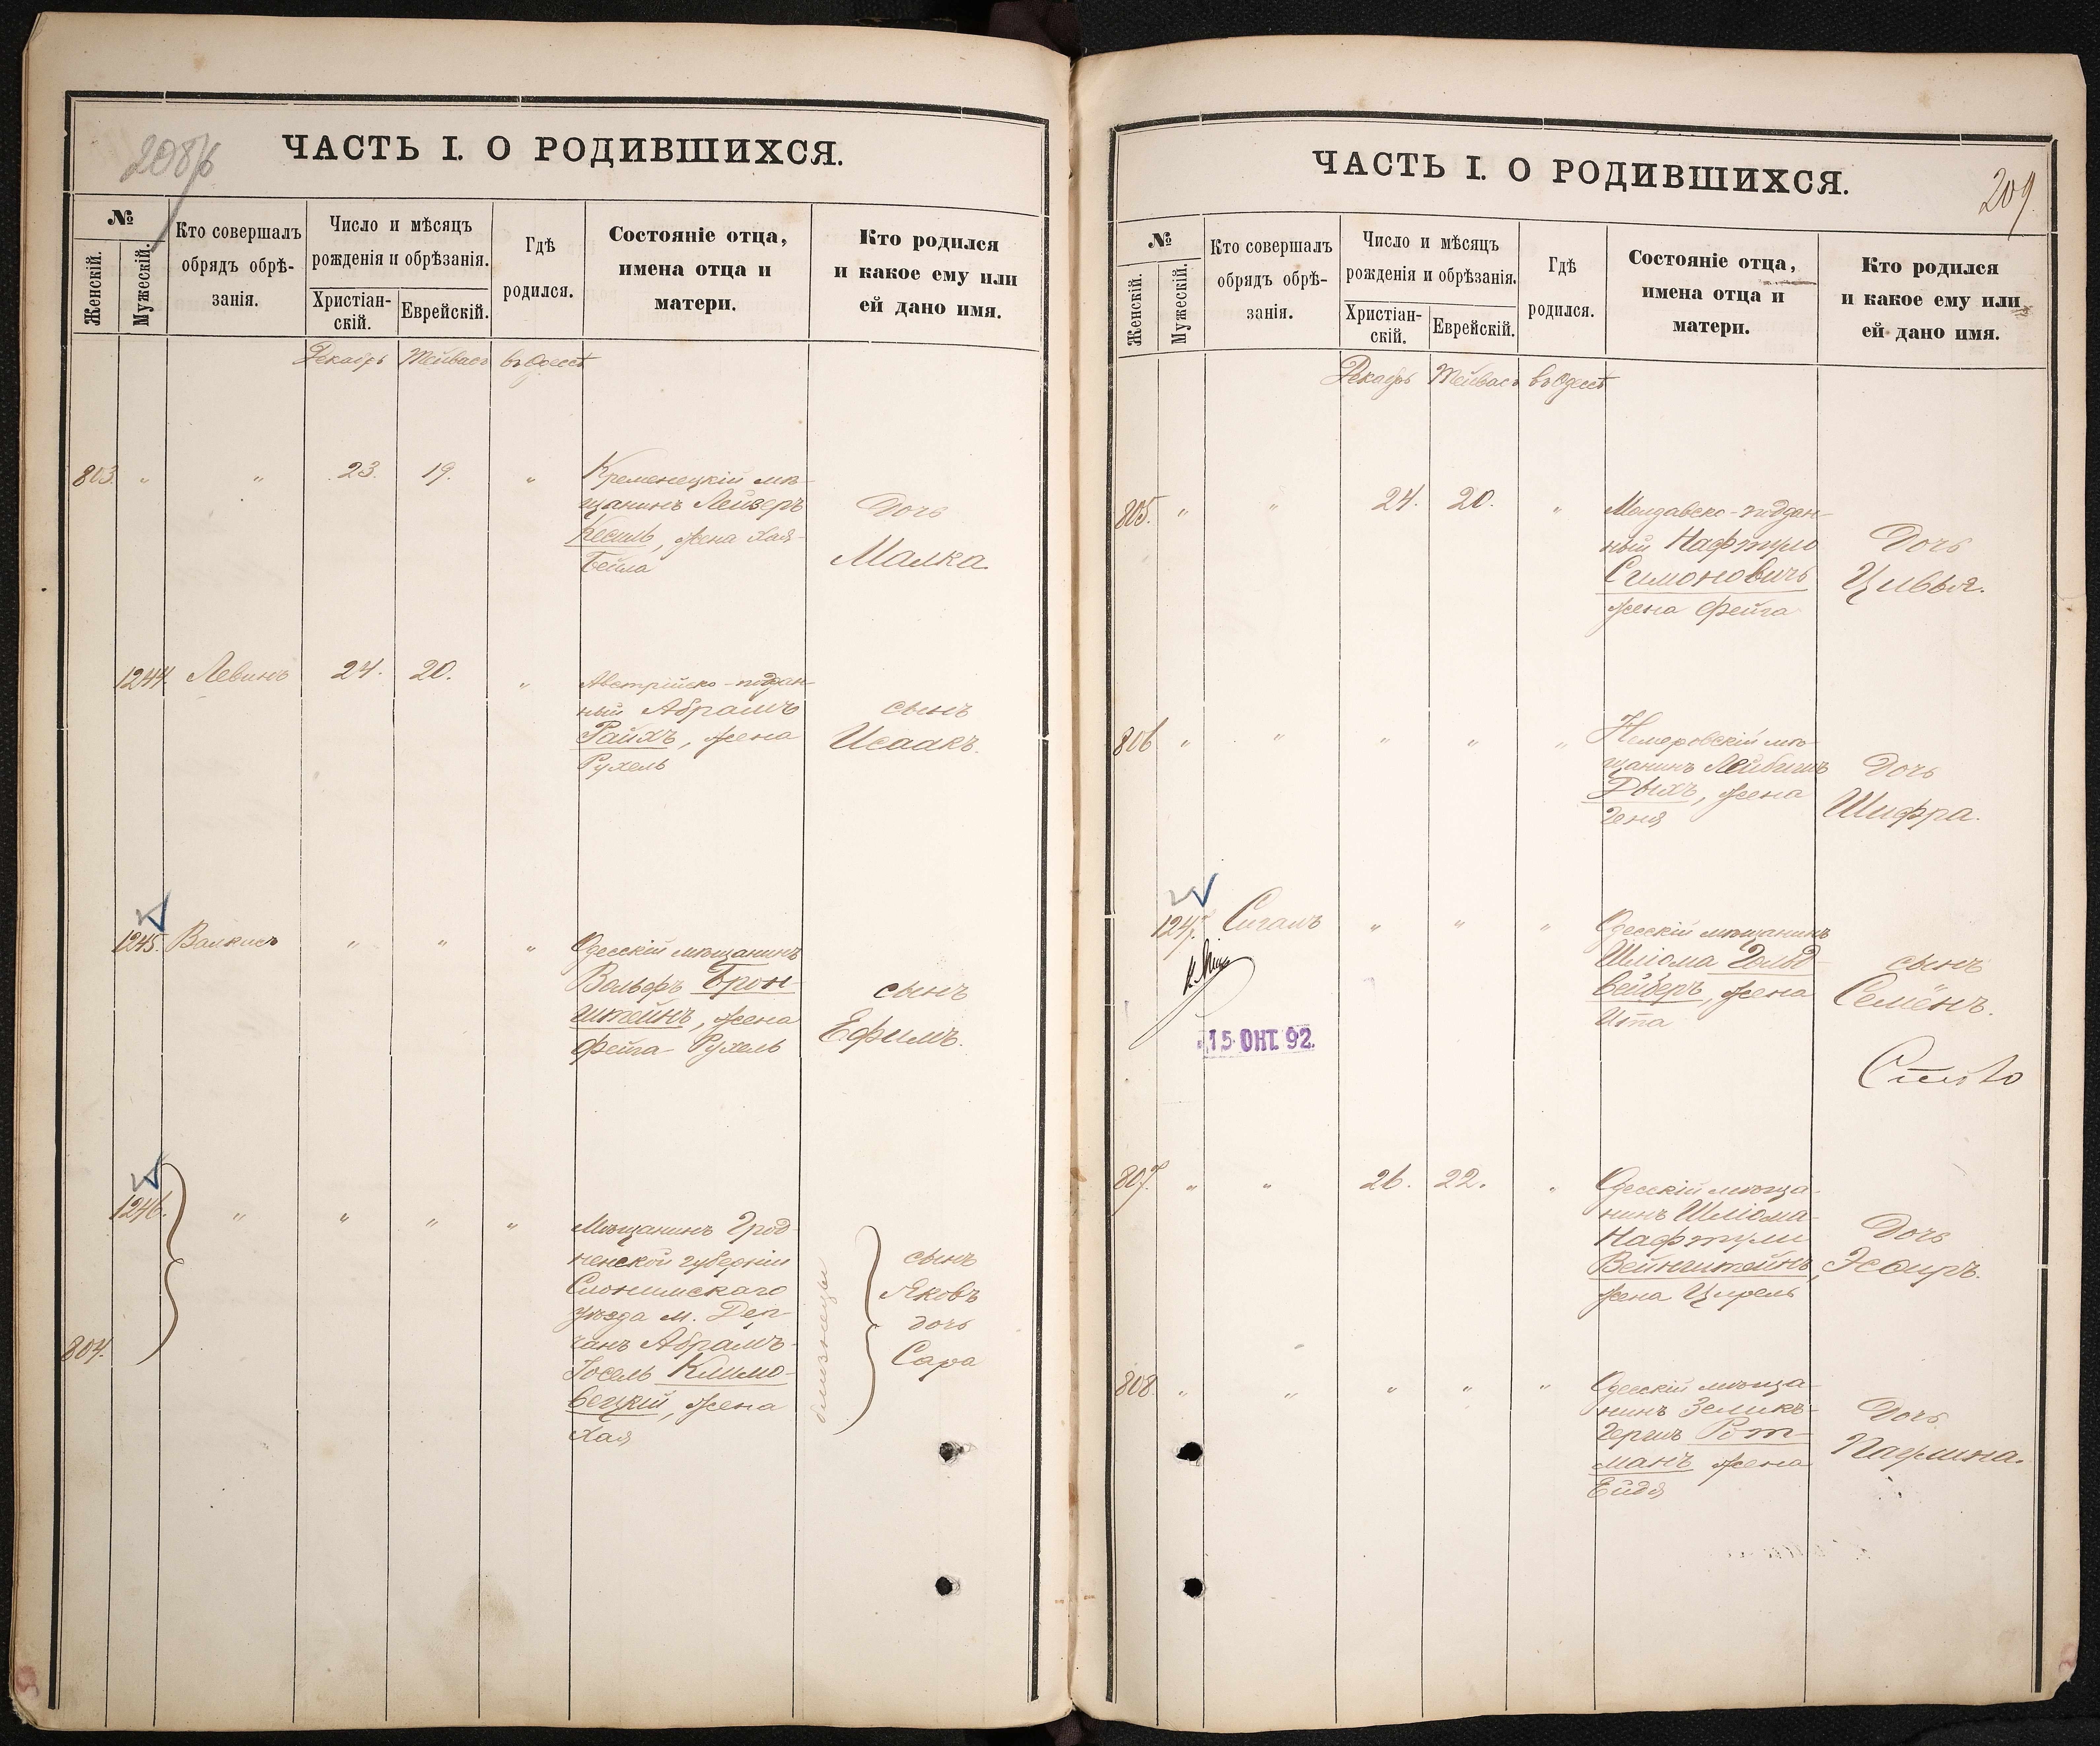 208/б
ЧАСТЬ I. О РОДИВШИХСЯ.
№
Женскій.
Мужескій.
Кто совершалъ
обрядъ обрѣ-
занія.
Число и мѣсяцъ
рожденія и обрѣзанія.
Христіан-
скій.
Еврейскій.
Гдѣ
родился.
Состояніе отца,
имена отца и
матери.
Кто родился
и какое ему или
ей дано имя.
Декабрь Тейвасъ въ Одессѣ
803. " " 23. 19. "
Кременецкій мѣ-
щанинъ Лейзеръ
Кесиль, жена Хая-
Бейла
Дочь
Малка.
1244. Левинъ 24. 20. "
Австрійско-поддан-
ный Абрамъ
Райхъ, жена
Рухель
сынъ
Исаакъ.
1245. Валкисъ " " "
Одесскій мѣщанинъ
Вольфъ Брон-
штейнъ, жена
Фейга-Рухель
сынъ
Ефимъ.
1246. " " " "
804.
Мѣщанинъ Грод-
ненской губерніи
Слонимскаго
уѣзда м. Дер-
чанъ Абрамъ-
Іосель Климо-
вецкій, жена
Хая
близнецы
сынъ
Яковъ
дочь
Сара
ЧАСТЬ I. О РОДИВШИХСЯ.
209.
№
Женскій.
Мужескій.
Кто совершалъ
обрядъ обрѣ-
занія.
Число и мѣсяцъ
рожденія и обрѣзанія.
Христіан-
скій.
Еврейскій.
Гдѣ
родился.
Состояніе отца,
имена отца и
матери.
Кто родился
и какое ему или
ей дано имя.
Декабрь Тейвасъ въ Одессѣ
805. " " 24. 20. "
Молдавско-поддан-
ный Нафтули
Симоновичъ
жена Фейга
Дочь
Цивья.
806 " " " " "
Немеровскій мѣ-
щанинъ Лейбишъ
Дыхъ, жена
Геня
Дочь
Шифра.
1247. Сигалъ " " "
Одесскій мѣщанинъ
Шліома Гольд-
вейберъ, жена
Ита
сынъ
Семёнъ.
15 ОКТ. 92.
807. " " 26. 22. "
Одесскій мѣща-
нинъ Шліома-
Нафтули
Вейнштейнъ,
жена Цирель
Дочь
Эсѳирь.
808. " " " " "
Одесскій мѣща-
нинъ Зеликъ-
Гершъ Рот-
манъ жена
Ейдя
Дочь